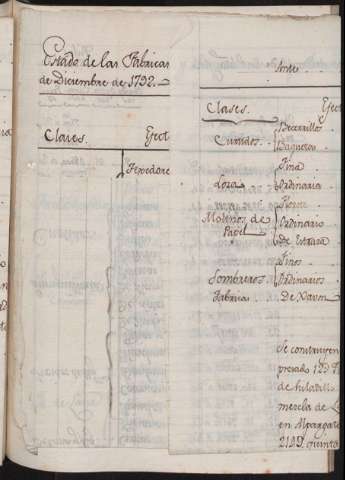 Estado de las Fabricas
de Diciembre de 1792.
Clases. Efect
Texedore
Ante
Clases. Efect
Curtidos. Becerrillos
Baquetas
Loza Fina
Ordinaria
Molinos de Papel Florete
Ordinario
de Estraza
Sombreros. Finos
Ordinarios
Fabricas De Xavon
Se construyen
preciado 12
de hiladill
mezcla de L
en Alpargate
quinta